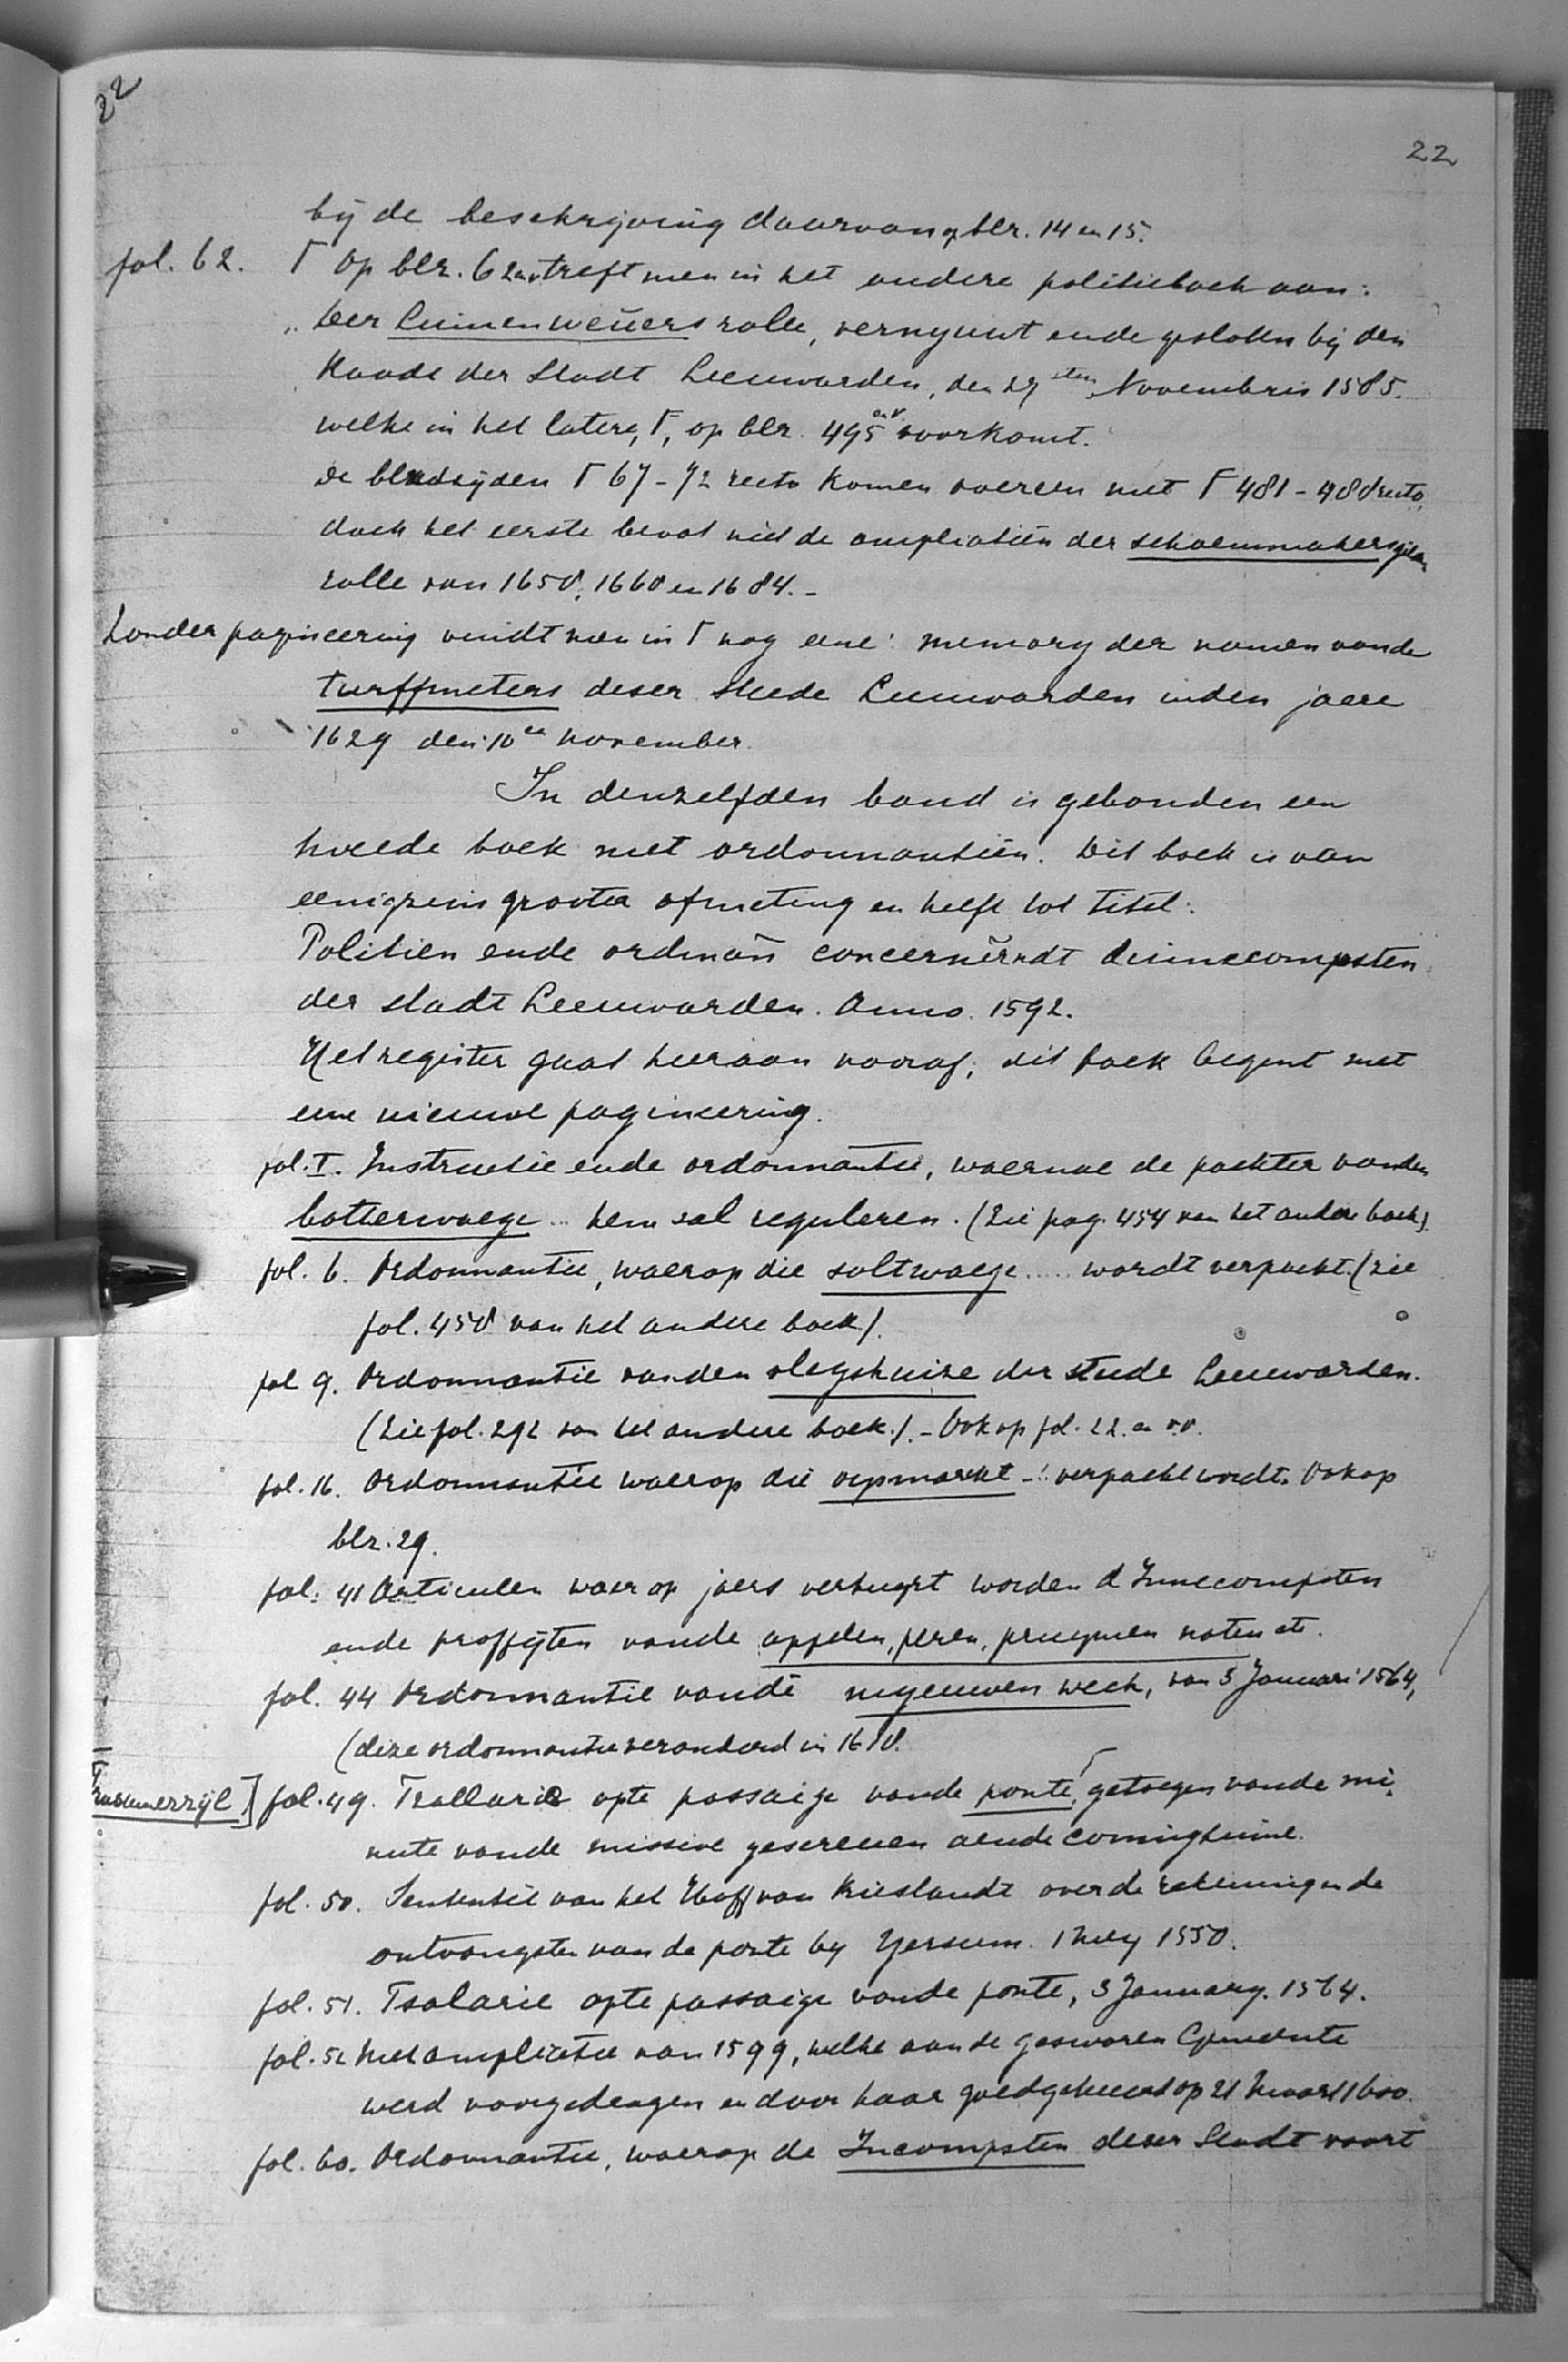 22
22
bij de beschrijving daarvan op blz. 14 en 15.
fol. 62. Γ Op blz. 62 env treft men in het andere politieboek aan:
„Der Linnenweuers rolle, vernyeut ende gesloten bij den
Raade der Stadt Leeuwarden, den 29sten Novembris 1585.
welke in het latere, Γ, op blz. 495 env voorkomt.
De bladzijden Γ 67-72 recto komen overeen met Γ 481-488 recto,
doch het eerste bevat niet de ampliatiën der schoenmakersgilde
rolle van 1658, 1660 en 1684.-
Zonder pagineering vindt men in Γ nog eene: memory der namen vande
turffmeters deser stede Leeuwarden inden jaere
1629 den 10en november.
In denzelfden band is gebonden een
tweede boek met ordonnantiën. Dit boek is van
eenigzins grooter afmeting en heeft tot titel:
Politien ende ordinañ concernerndt deinnecompsten
der stadt Leeuwarden. Anno. 1592.
Het register gaat hieraan vooraf; dit boek begint met
eene nieuwe pagineering.
fol. I. Instructie ende ordonnantie, waernae de pachter vanden
botterwaege ... hem sal reguleren. (Zie pag. 454 van het andere boek).
fol. 6. Ordonnantie, waerop die soltwaege ..... wordt verpacht. (Zie
fol. 458 van het andere boek).
fol 9. Ordonnantie vanden slagshuise der stede Leeuwarden.
(Zie fol. 292 van het andere boek.). - Ook op fol. 22. en v.v.
fol. 16. Ordonnantie waerop die marckt - verpacht wordt. Ook op
blz. 29.
fol. 41 Articulen waer op jaers verhuyrt worden d'Innecompsten
ende proffijten vande appelen, peren, pruymen noten etc.
fol. 44 Ordonnantie vande nyeuwen wech, van 3 Januari 1564,
(deze ordonnantie veranderd in 1618.
fol. 49. Tsallarie opte passaige vande ponte, getogen vande mi-
nute vande missive gescreuen aende coninghinne.
fol. 50. Sententie van het Hoff van Frieslandt over de rekeningen de
ontvangsten van de ponte by Yersum. 1 July 1550.
fol. 51. Tsalarie opte passaige vande ponte, 3 January. 1564.
fol. 52 Met ampliatie van 1599, welke aan de gesworen Gemeente
werd voorgedragen en door haar goedgekeurd op 21 Maart 1600.
fol. 60. Ordonnantie, waerop de Incompsten deser Stadt voort